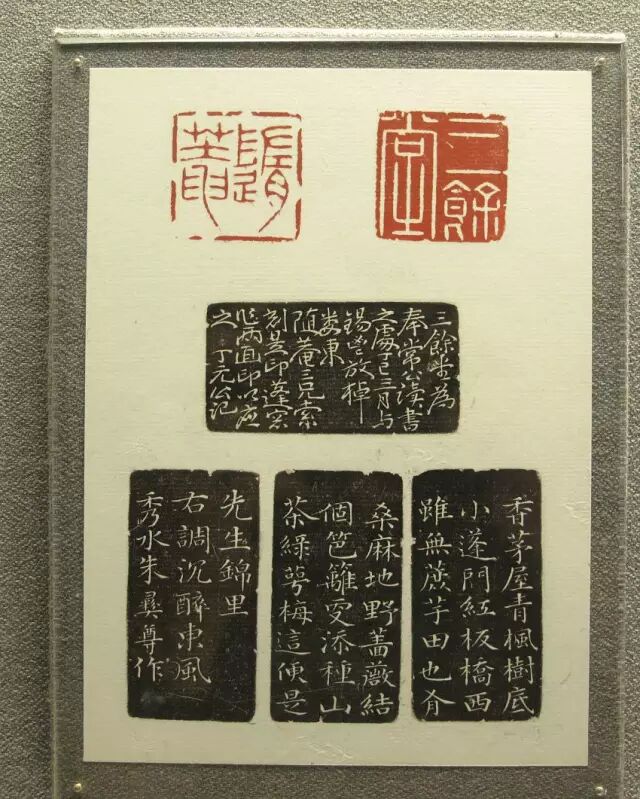 三餘堂
隨菴
三餘堂為
奉常公讀書
之處丁巳三月与
錫鬯放棹
婁東
隨菴三兄索
刻是印蓬窓
作两面印以应
之 丁元公記
香茅屋青楓樹底
小蓬門紅板橋西
雖無蔗芋田也有
桑麻地野薔薇結
個笆籬更添種山
茶綠萼梅這便是
先生錦里
右調沉醉東風
秀水朱彝尊作